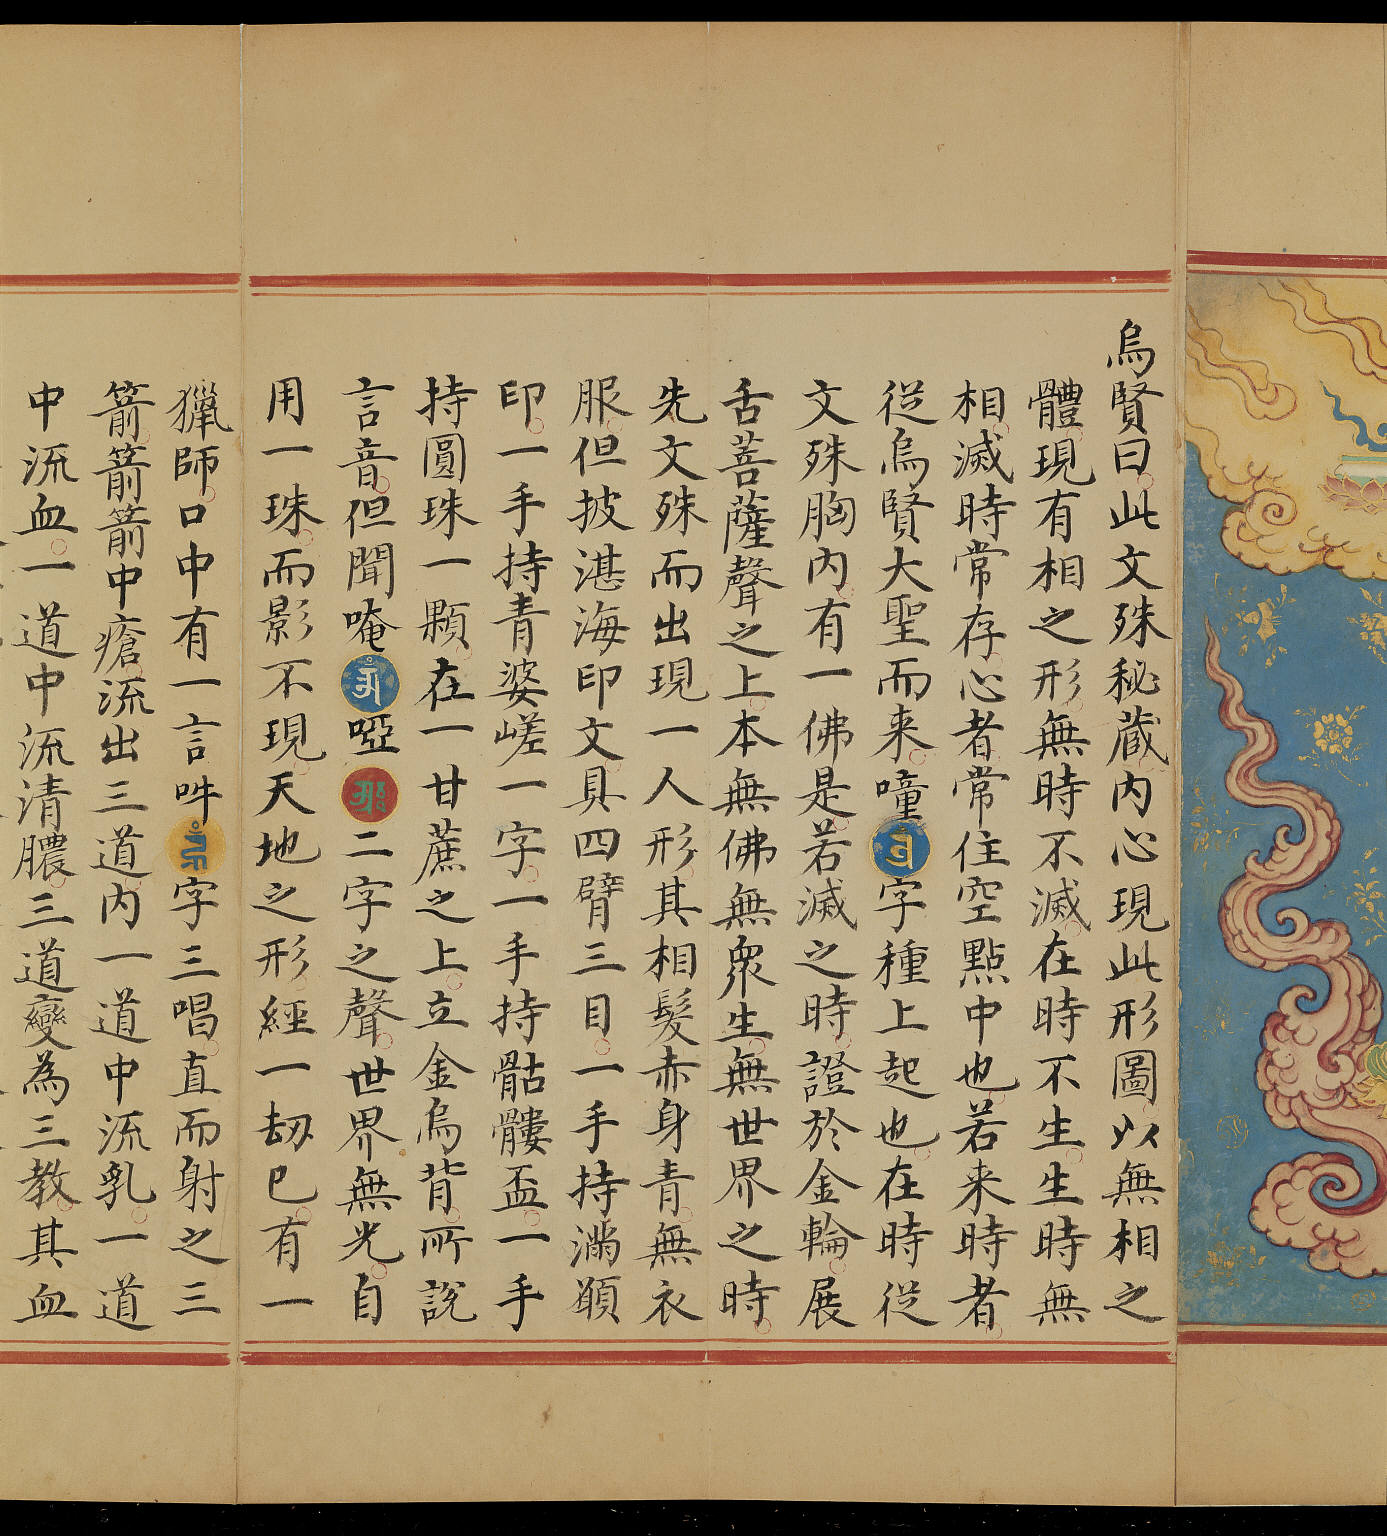 烏賢曰此文殊秘蔵内心現此形圖以無相之
體現有相之形無時不滅在時不生生時無
相滅時常存心者常住空點中也若来時者
從烏賢大聖而来㘒字種上起也在時從
文殊胸内有一佛是若滅之時證於金輪展
舌菩薩聲之上本無佛無衆生無世界之時
先文殊而出現一人形其相髮赤身青無衣
服但披湛海印文具四臂三目一手持滿願
印一手持青婆嵯一字一手持骷髏盃一手
持圓珠一顆在一甘蔗之上立金烏背所說
言音但聞唵啞二字之聲世界無光自
用一珠而影不現天地之形經一劫已有一
獵師口中有一言吽字三唱直而射之三
箭箭箭中瘡流出三道内一道中流乳一道
中流血一道中流清膿三道變為三教其血